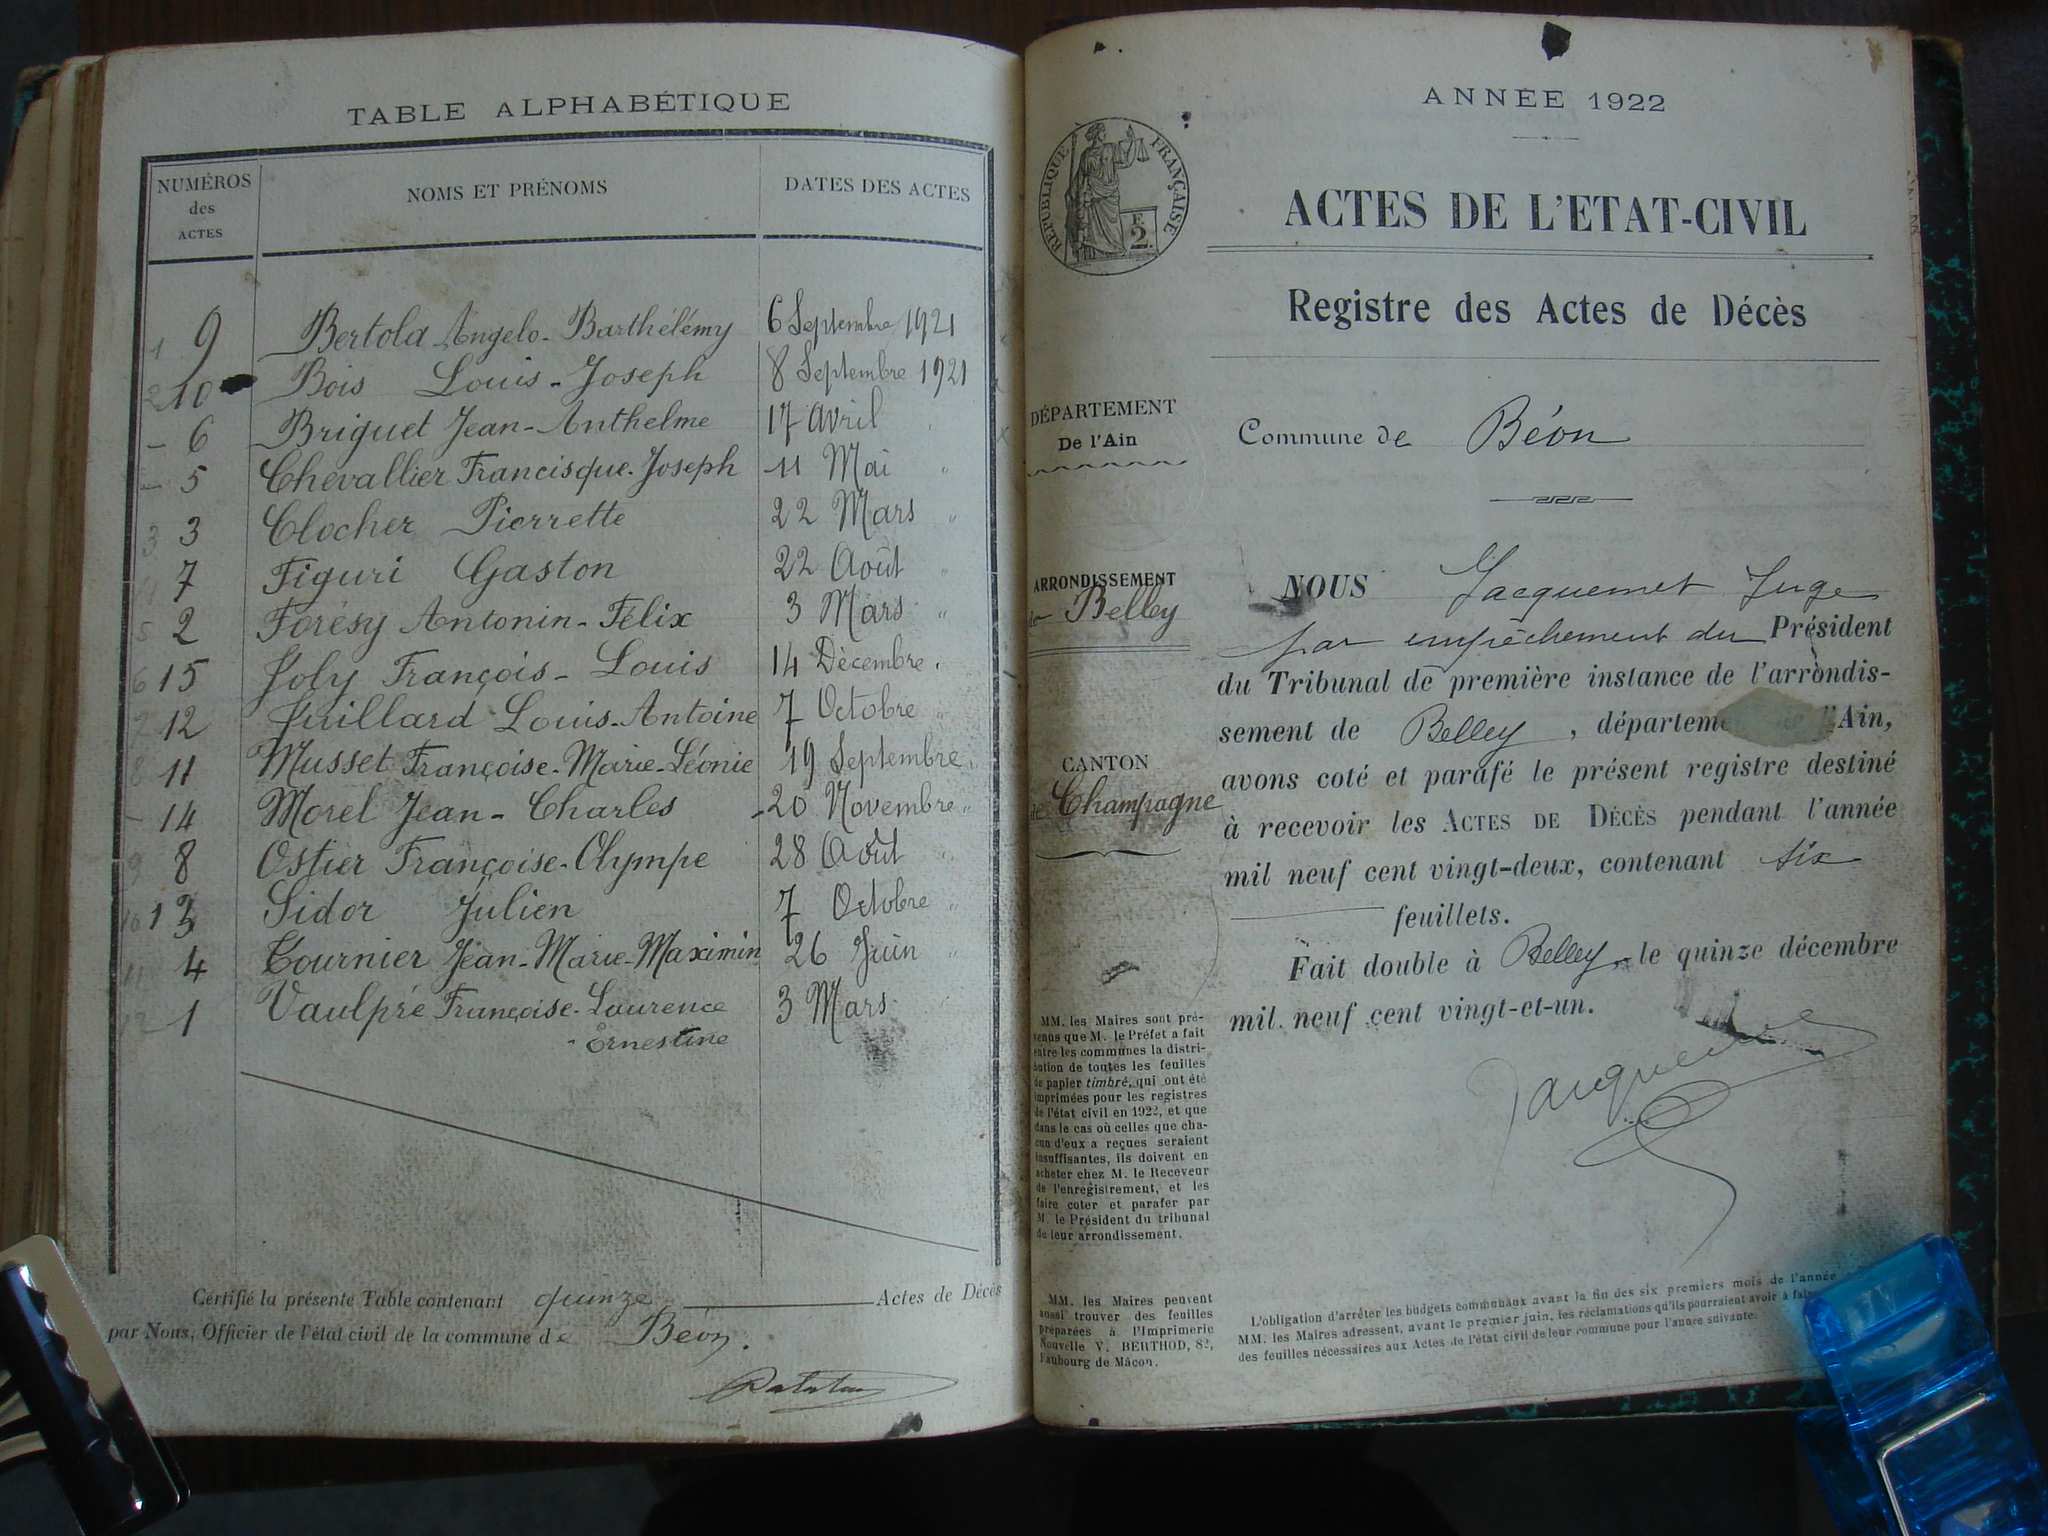 TABLE ALPHABÉTIQUE
NUMÉROS des ACTES NOMS ET PRÉNOMS DATES DES ACTES
1 9 Bertola Angelo-Barthélémy 6 Septembre 1921
2 10 Bois Louis-Joseph 8 Septembre 1921
- 6 Briguet Jean-Anthelme 17 Avril "
- 5 Chevallier Francisque-Joseph 11 Mai "
3 3 Clocher Pierrette 22 Mars "
7 Figuri Gaston 22 Août "
5 2 Forésy Antonin-Félix 3 Mars "
6 15 Joly François-Louis 14 Décembre "
7 12 Juillard Louis-Antoine 7 Octobre "
8 11 Musset Françoise-Marie-Léonie 19 Septembre "
- 14 Morel Jean-Charles 20 Novembre "
9 8 Ostier Françoise-Olympe 28 Août "
10 13 Sidor Julien 7 Octobre "
11 4 Tournier Jean-Marie-Maximin 26 Juin "
12 1 Vaulpré Françoise-Laurence 3 Mars "
-Ernestine
Certifié la présente Table contenant quinze Actes de Décès
par Nous, Officier de l'état civil de la commune de Béon.
ANNÉE 1922
RÉPUBLIQUE FRANÇAISE
2 F.
ACTES DE L'ETAT-CIVIL
Registre des Actes de Décès
DÉPARTEMENT
De l'Ain
Commune de Béon
ARRONDISSEMENT
de Belley
CANTON
de Champagne
NOUS Jacquemet Juge
par empêchement du Président
du Tribunal de première instance de l'arrondis-
sement de Belley, départem l'Ain,
avons coté et parafé le présent registre destiné
à recevoir les ACTES DE DÉCÈS pendant l'année
mil neuf cent vingt-deux, contenant six
feuillets.
Fait double à Belley, le quinze décembre
mil neuf cent vingt-et-un.
Jacquemet
MM. les Maires sont pré-
venus que M. le Préfet a fait
entre les communes la distri-
bution de toutes les feuilles
de papier timbré, qui ont été
imprimées pour les registres
de l'état civil en 1922, et que
dans le cas où celles que cha-
cun d'eux a reçues seraient
insuffisantes, ils doivent en
acheter chez M. le Receveur
de l'enregistrement, et les
faire coter et parafer par
M. le Président du tribunal
de leur arrondissement.
MM. les Maires peuvent
aussi trouver des feuilles
préparées à l'Imprimerie
Nouvelle V. BERTHOD, 82,
Faubourg de Mâcon.
L'obligation d'arrêter les budgets communaux avant la fin des six premiers mois de l'année
MM. les Maires adressent, avant le premier juin, les réclamations qu'ils pourraient avoir à faire
des feuilles nécessaires aux Actes de l'état civil de leur commune pour l'année suivante.